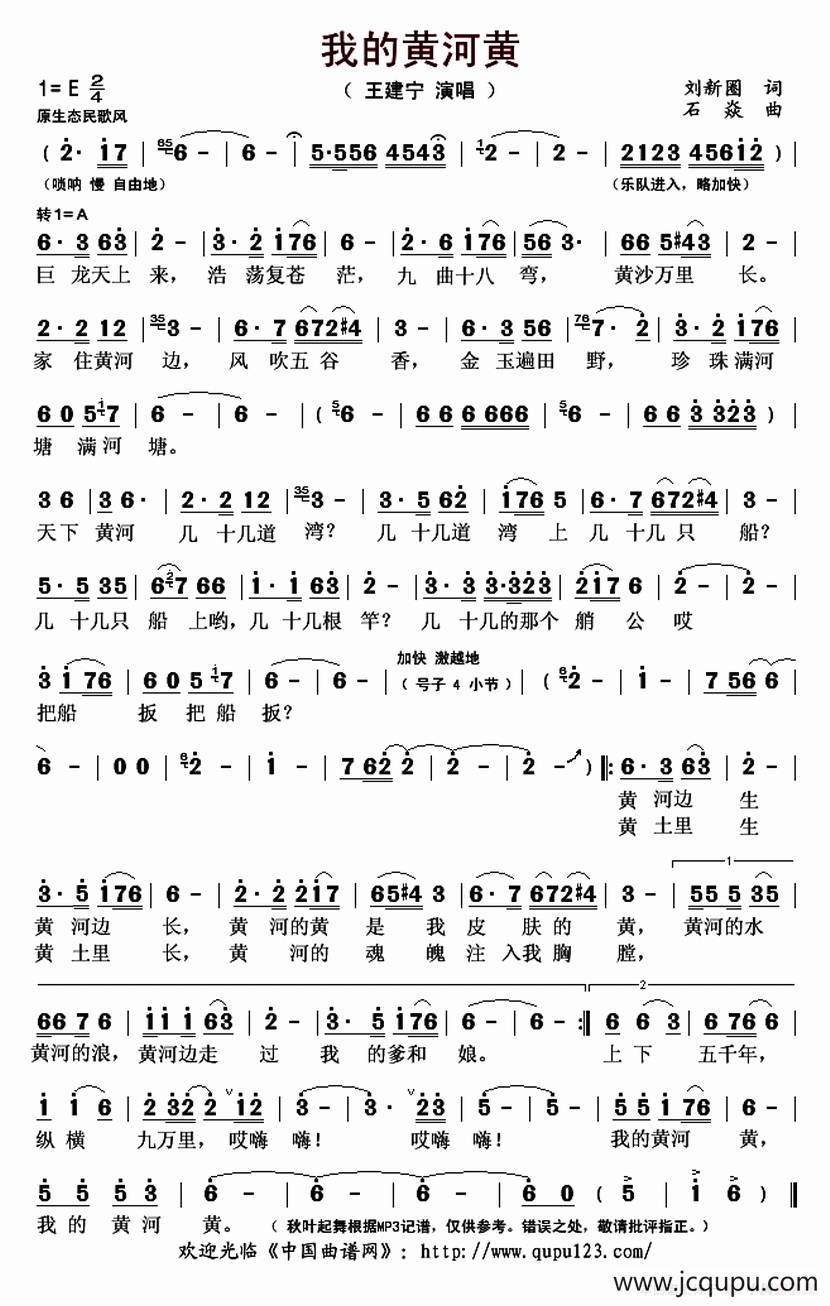 我的黄河黄
1=E 2/4
（ 王建宁 演唱 ）
刘新圈 词
石 焱 曲
原生态民歌风
( 2· 17 | 656 - | 6 - | 5·5556 4543 | 12 - | 2 - | 2123 45612 ) |
（唢呐 慢 自由地）
（乐队进入，略加快）
转1=A
6·3 63 | 2 - | 3·2 176 | 6 - | 2·6 176 | 56 3· | 66 5#43 | 2 - |
巨 龙天上 来， 浩 荡复苍 茫， 九 曲十八 弯， 黄沙万里 长。
2·2 12 | 353 - | 6·5 672#4 | 3 - | 6·3 56 | 767· 2 | 3·2 176 |
家 住黄河 边， 风 吹五谷 香， 金 玉遍田 野， 珍 珠满河
60 517 | 6 - | 6 - | ( 56 - | 66 6666 | 56 - | 66 3323 ) |
塘 满河 塘。
3 6 | 3 6· | 2·2 12 | 353 - | 3·5 62 | 176 5 | 6·5 672#4 | 3 - |
天下 黄河 几 十几道 湾？ 几 十几道 湾 上 几 十几只 船？
5·5 35 | 627 66 | 1·1 63 | 2 - | 3·3 3·323 | 217 6 | 2 - | 2 - |
几 十几只 船 上哟，几 十几根 竿？ 几 十几的那个 艄 公 哎
加快 激越地
3 176 | 60 517 | 6 - | 6 - | （ 号子 4 小节 ）| ( 62 - | 1 - | 756 6 |
把船 扳 把船 扳？
6 - | 0 0 | 62 - | 1 - | 762 2 | 2 - 2 | 2 - ) ‖: 6·3 63 | 2 - |
黄 河边 生
黄 土里 生
1
3·5 176 | 6 - | 2·2 217 | 65#4 3 | 6·7 672#4 | 3 - | 55 5 35 |
黄 河边 长， 黄 河的黄 是 我 皮 肤的 黄， 黄河的水
黄 土里 长， 黄 河的 魂 魄 注 入我胸 膛，
2
66 7 6 | 11 1 63 | 2 - | 3· 5 176 | 6 - | 6 - :‖ 6 6 3 | 67 6 |
黄河的浪， 黄河边走 过 我 的爹和 娘。 上 下 五千年，
1 1 6 | 2 32 2 ∨ 12 | 3 - | 3· ∨ 23 | 5 - | 5 - | 55 1 76 | 6 - |
纵 横 九万里， 哎嗨 嗨！ 哎嗨 嗨！ 我的黄河 黄，
5 5 | 5 3 | 6 - | 6 - | 6 - | 6 0 ( 5 | 1 6 ) ‖
我 的 黄 河 黄。 （ 秋叶起舞根据MP3记谱，仅供参考。错误之处，敬请批评指正。）
欢迎光临《中国曲谱网》：http://www.qupu123.com/
www.jcqupu.com